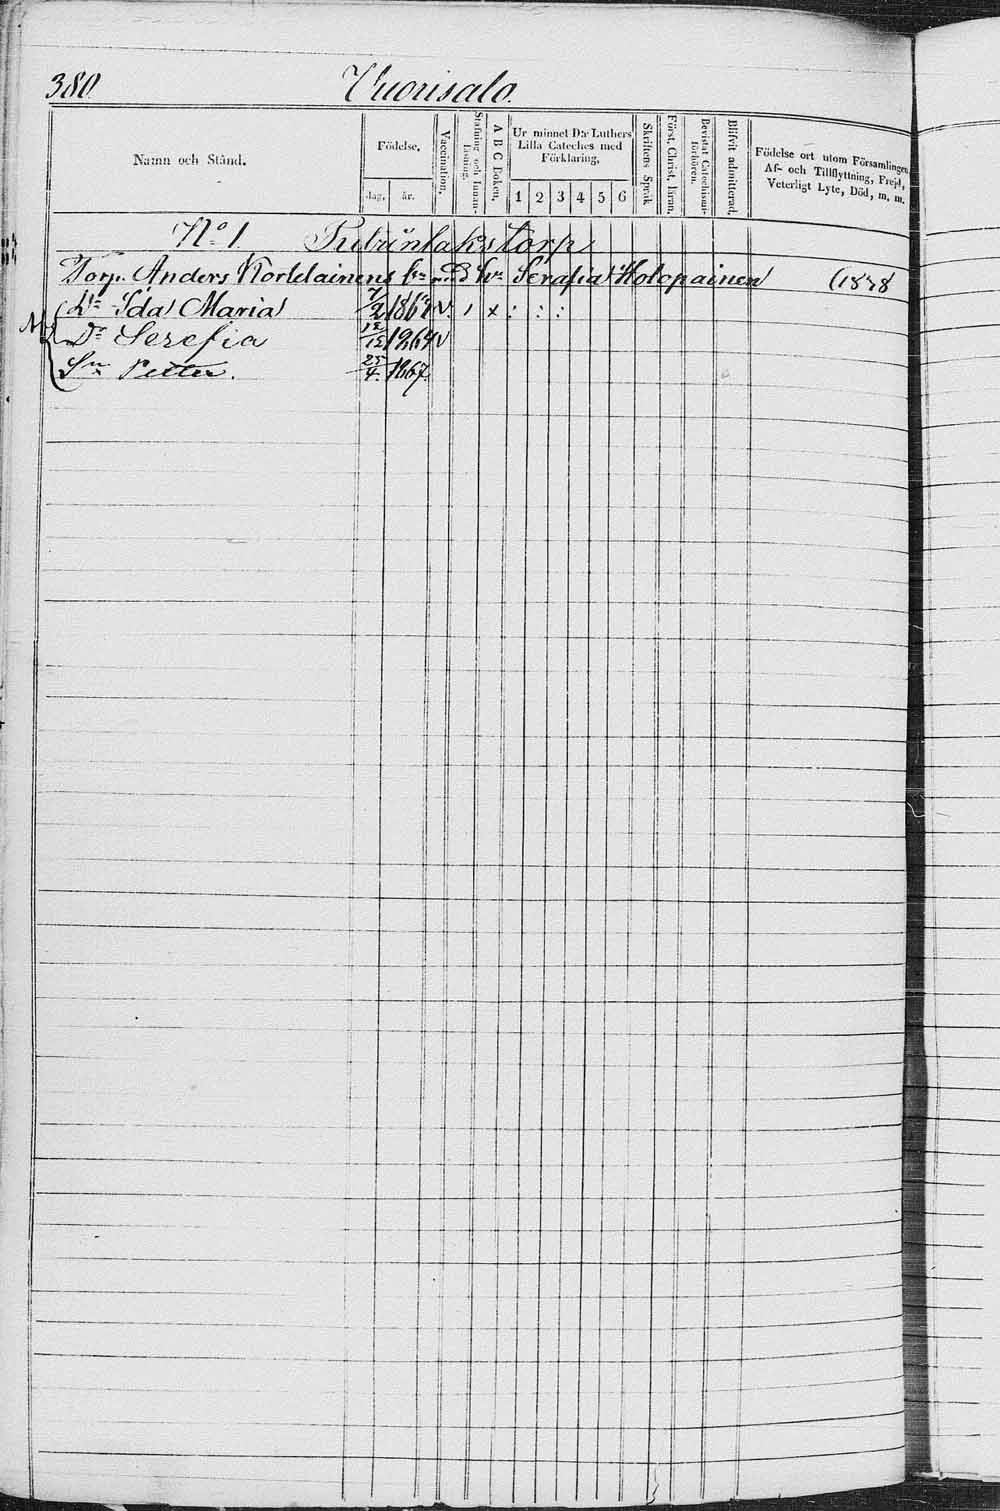 380. Vuorisalo.
Namn och Stånd.
Födelse,
dag, år.
Vaccination,
Stafning och Innan-läsning,
A B C Boken,
Ur minnet D:r Luthers Lilla Cateches med Förklaring,
1 2 3 4 5 6
Skriftens Språk
Först. Christ. läran.
Bevistat Catechismi-förhören.
Blifvit admitterad,
Födelse ort utom Församlingen, Af- och Tillflyttning, Frejd, Veterligt Lyte, Död, m. m.
N:o 1. torp
Torp. Anders Korhelainens br. med h:n Serafia Holopainen (1878
D:r Ida Maria 7/2 1862 v. , x : : :
D:r Serefia 12/12 1864 v
S:n Petter. 25/4 1867.